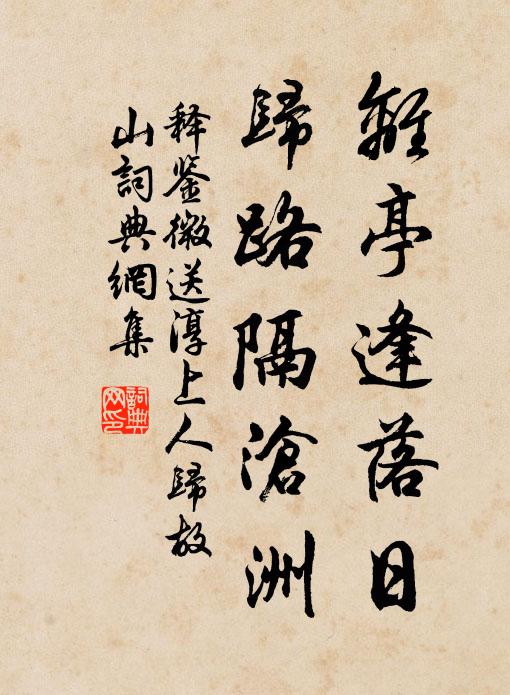 離亭逢落日
歸路隔滄洲
释鉴微送淳上人歸故
山詞典網集
詞典网印